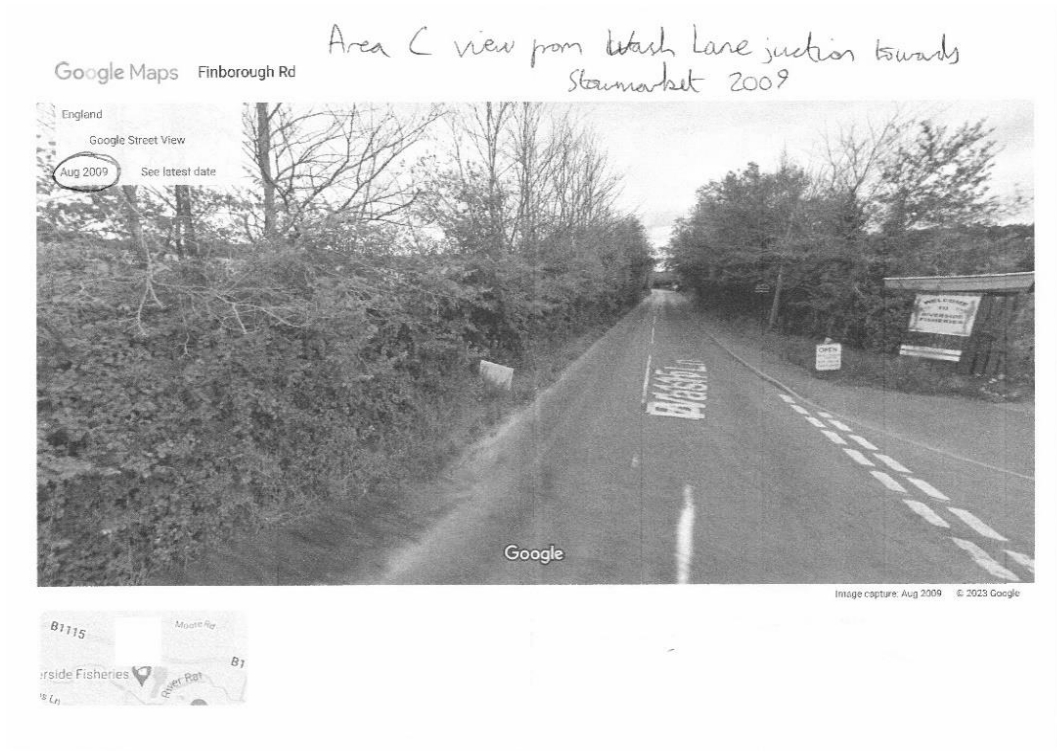 Area C view from Wash Lane juction towards
Stowmarket 2009
Google Maps Finborough Rd
England
Google Street View
Aug 2009 See latest date
WELCOME
TO
RIVERSIDE
FISHERIES
OPEN
B1115
Wash Ln
Google
Image capture: Aug 2009 © 2023 Google
B1115
B1
erside Fisheries
River Rat